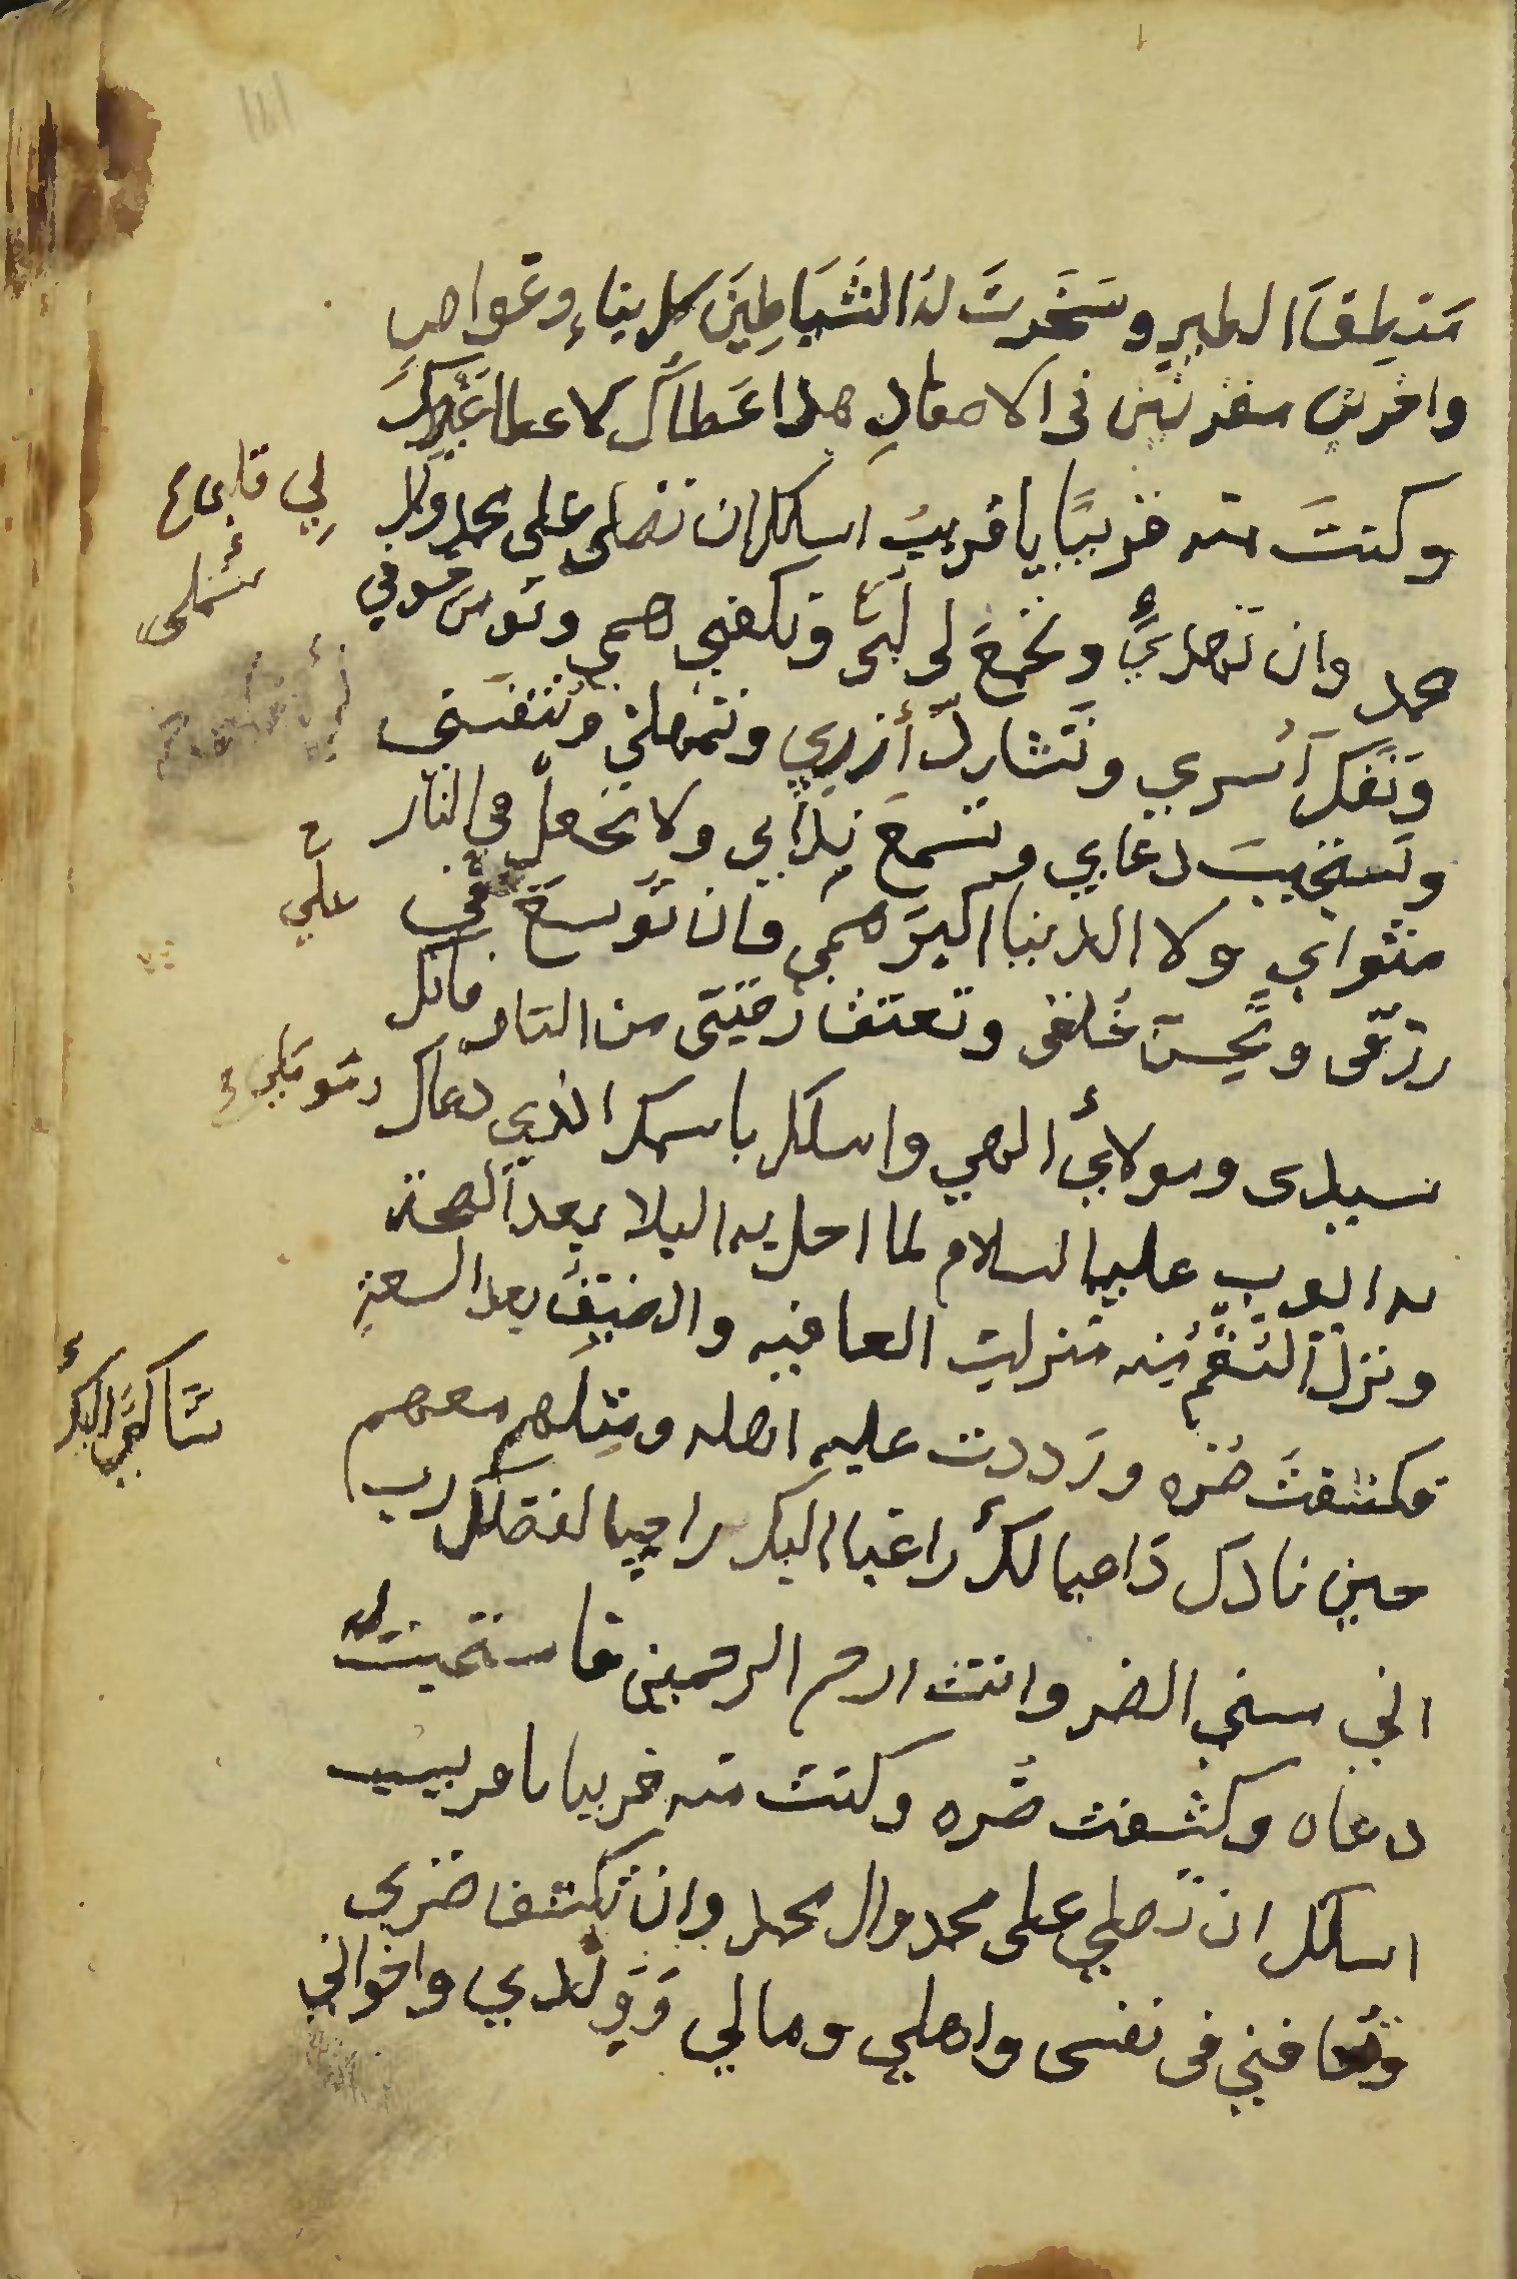 منطِقَ الطيرِ وسَخَّرتَ له الشَيَاطِينَ كل بناءٍ وغواصٍ
واخرين مقرنين في الاصفادِ هذا عَطاؤُك لا عطا غَيرِكَ
وكنتَ منه قريبًا يا قريبُ اسالك ان تصلى على محمد وال
محمد وان تهدي وتجمع لى لُبّي وتكفني همي وتومن خوفي
وتَفك أسري وتَشد أزري وتمهلني وتنفسني
وتَستجيبَ دعاي وتسمعَ نِدَاي ولا تجعل في النار
مثواي ولا الدنيا اكبرَ همي وان تُوسعَ في
رزقى وتُحسنَ خُلقى وتعتق رقبتى من النار فانك
سيدى ومولاي الهي واسالك باسمك الذي دعاك
به ايوب عليه السلام لما احل به البلا بعد الصحة
ونزل السُقم منه منزلت العافيه والضيق بعد السعةِ
فكشفتَ ضُره ورَددت عليه اهله ومِثلَهم معهم
حين ناداك داعيا لك راغبا اليك راجيا لفضلك رب
اني مسني الضر وانت ارحم الرحمين فاستجبت له
دعاه وكشفت ضُره وكنت منه قريبا يا قريب
اسالك ان تصلي على محمد وال محمد وان تكشف ضري
وتعافني في نفسى واهلي ومالي وَوَلدي واخواني
لِي قلبي
شملى
علي
ومتوكلي
شاكيًا اليك